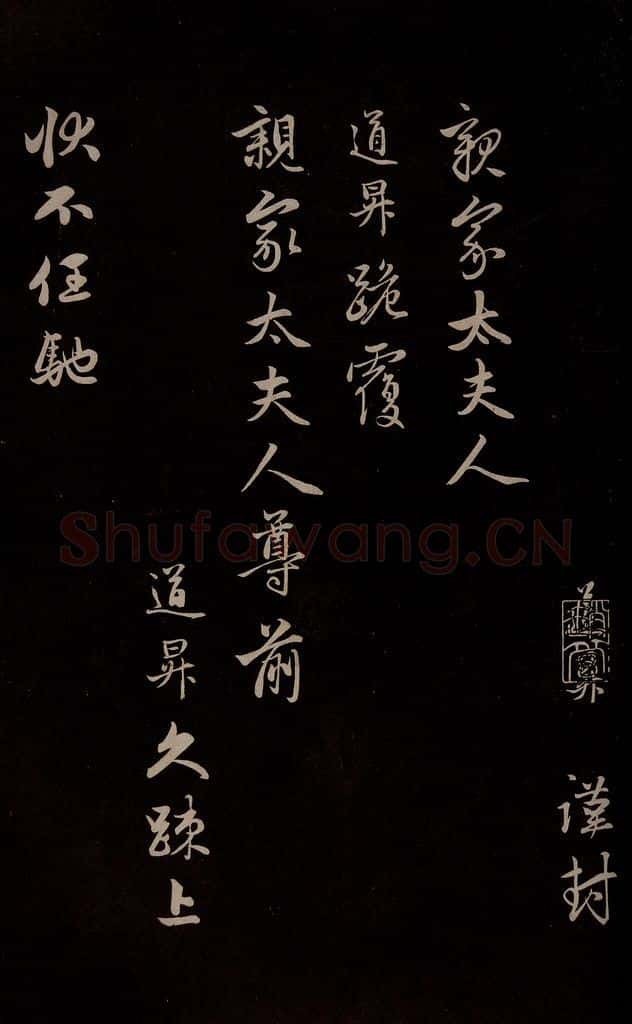 謹封
親家太夫人
道昇跪覆
親家太夫人尊前
道昇久踈上
狀不任馳
Shufawang.CN